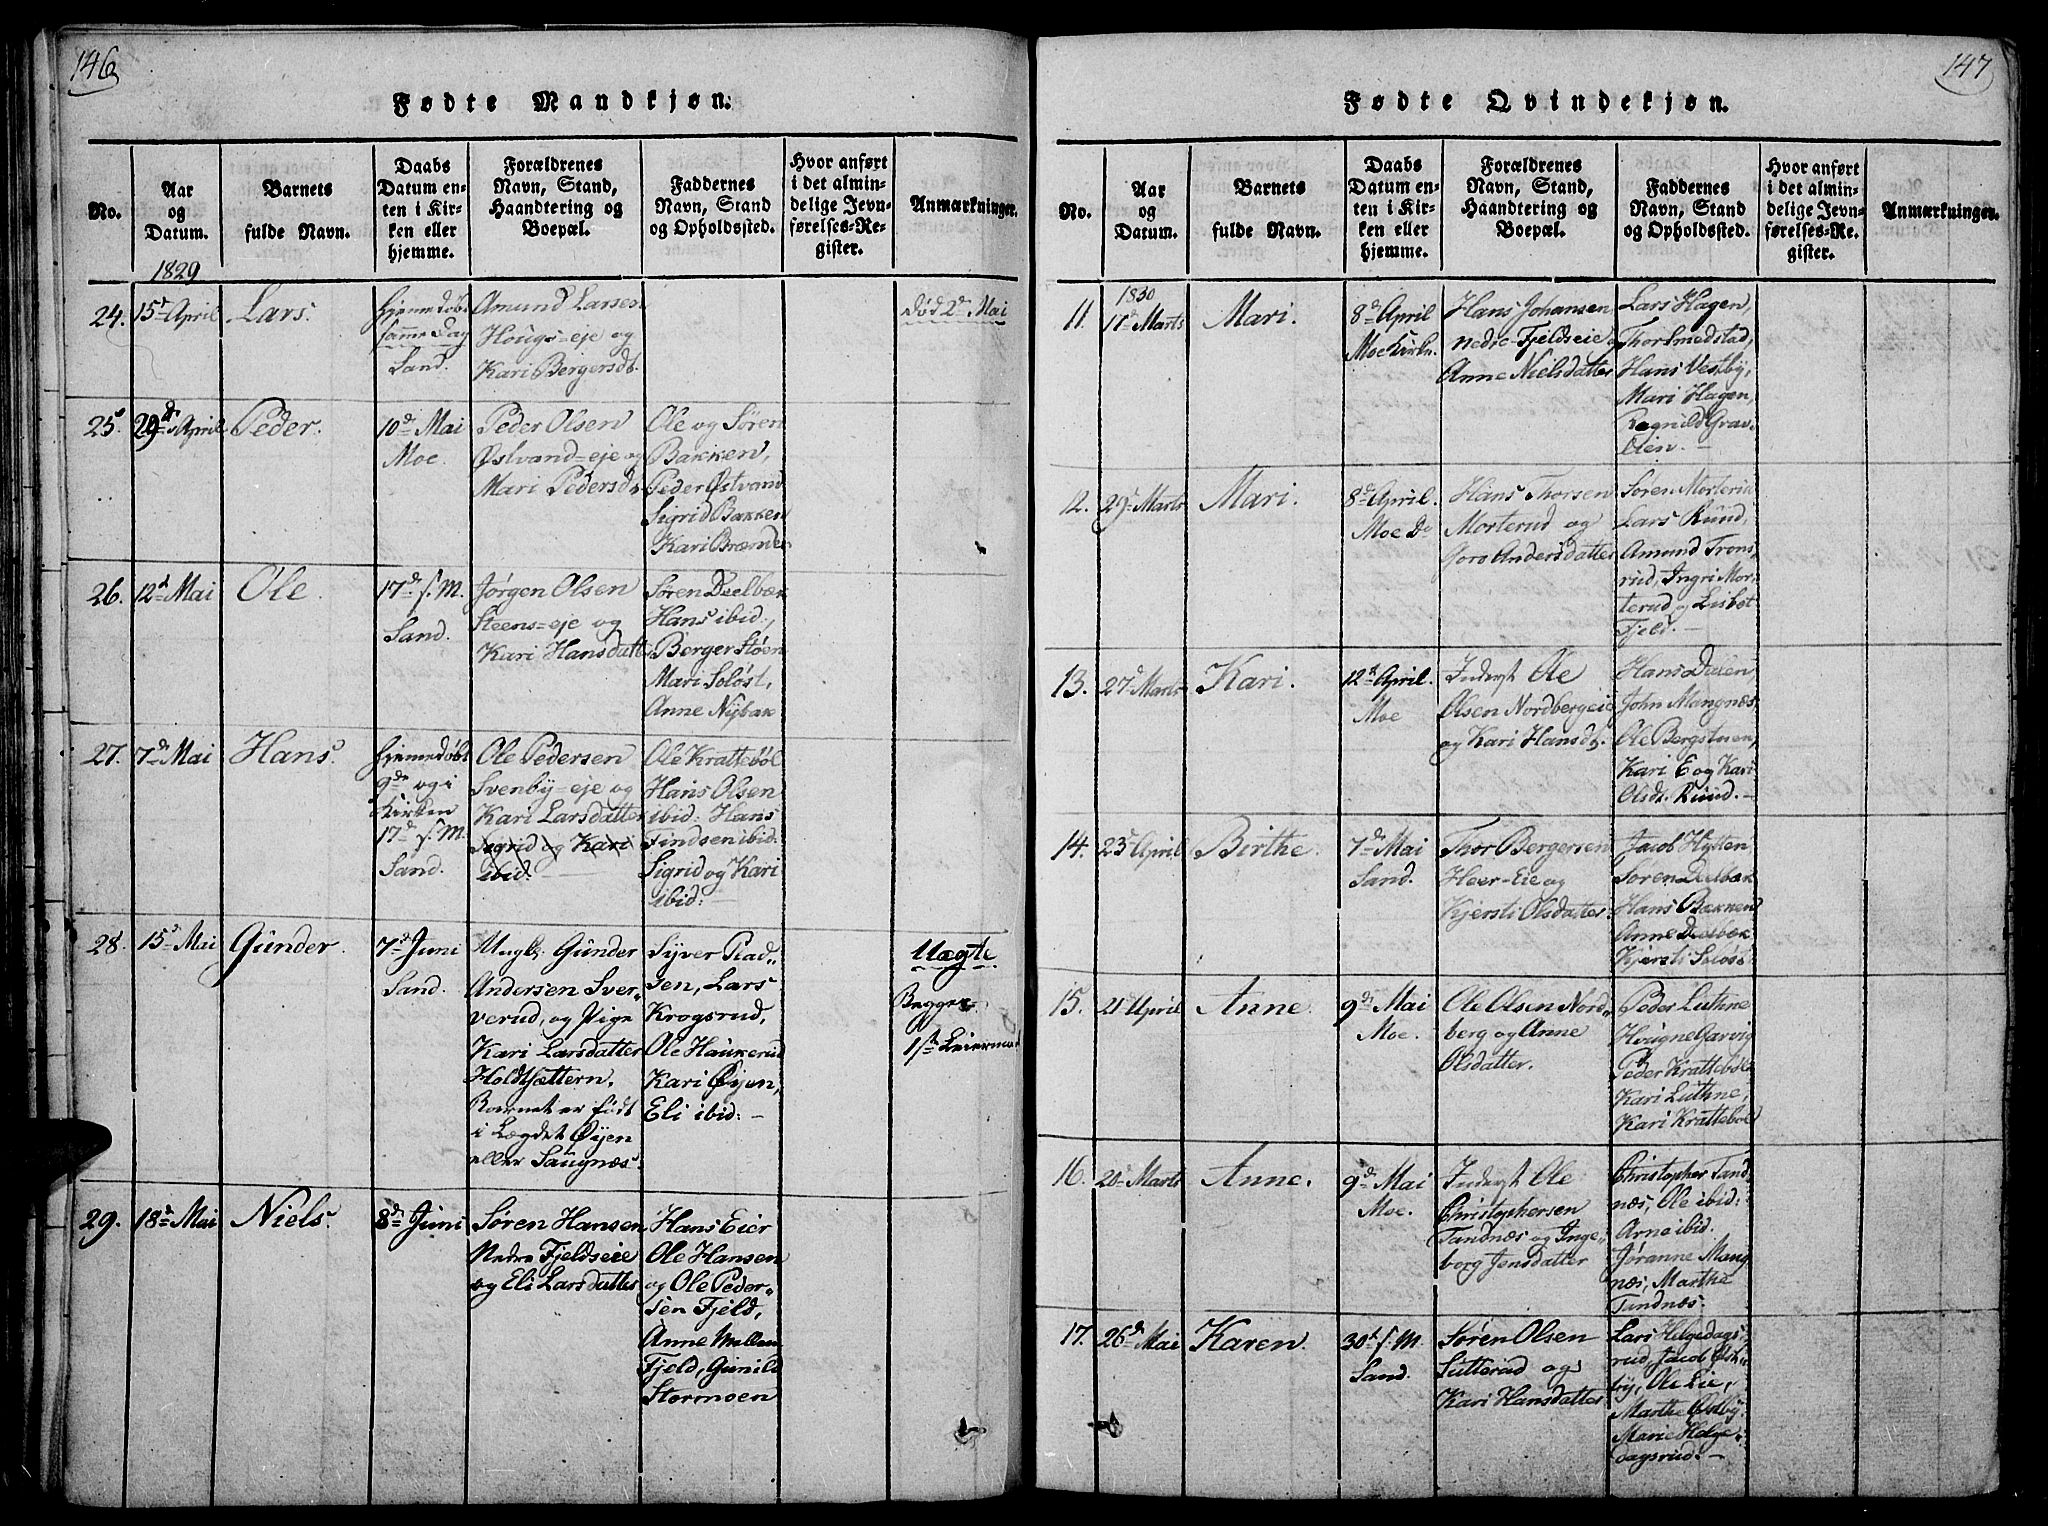 146
Fødte Mandkjøn.
No.
Aar
og
Datum.
Barnets
fulde Navn.
Daabs
Datum en-
ten i Kir-
ken eller
hjemme.
Forældrenes
Navn, Stand,
Haandtering og
Boepæl.
Faddernes
Navn, Stand
og Opholdssted.
Hvor anført
i det almin-
delige Jevn-
førelses-Re-
gister.
Anmærkninger.
1829
24.
15d April
Lars.
hjemedøbt
samme Dag
Sand.
Amund Larsen
Hougs-eje og
Kari Bergersdt.
død 2d Mai
25.
29d April
Peder.
10d Mai
Moe.
Peder Olsen
Østvand-eje og
Mari Pedersdt.
Ole og Søren
Bakken,
Peder Østvand
Sigrid Bakken
Kari Brænde
26.
12d Mai
Ole.
17d s. M.
Sand.
Jørgen Olsen
Steens-eje og
Kari Hansdatter
Søren Deelbæk
Hans ibid.,
Berger Støen
Mari Soløst,
Anne Nybak
27.
7d Mai
Hans.
hjemedøbt
9d og i
Kirken
17d s. M.
Sand.
Ole Pedersen
Svenby-eje og
Kari Larsdatter
Sigrid og Kari
ibid.
Ole Kratteböl
Hans Olsen
ibid: Hans
Findsen ibid:
Sigrid og Kari
ibid:
28.
15d Mai
Gunder.
7d Juni
Sand.
Ungk. Gunder
Andersen Sver-
verud, og Pige
Kari Larsdatter
Holdtsættern.
Barnet er født
i Lægdet Øyen
eller Saugnæs.
Syver Plad-
sen, Lars
Krogsrud,
Ole Haukerud
Kari Øyen,
Eli ibid:
Uægte
Begges
1ste Leiermaal
29.
18d Mai
Niels.
8d Juni
Søren Hansen
Nedre Fjeldseie
og Eli Larsdatter
Hans Eier
Ole Hansen
og Ole Peder-
sen Fjeld,
Anne Mellem
Fjeld, Gunild
Stormoen
147
Fødte Qvindekjøn.
No.
Aar
og
Datum.
Barnets
fulde Navn.
Daabs
Datum en-
ten i Kir-
ken eller
hjemme.
Forældrenes
Navn, Stand,
Haandtering og
Boepæl.
Faddernes
Navn, Stand
og Opholdssted.
Hvor anført
i det almin-
delige Jevn-
førelses-Re-
gister.
Anmærkninger.
1830
11.
11d Marts
Mari.
8d April
Moe Kirke.
Hans Johansen
nedre-Fjeldseie og
Anne Nielsdatter
Lars Hagen,
Thor Smedstad,
Hans Vestby,
Mari Hagen,
Ragnild Grav-
lien.
12.
29d Marts
Mari.
8d April.
Moe Do
Hans Thorsen
Morterud og
Goro Andersdatter
Søren Morterud
Lars Rund,
Amund Trons-
rud, Ingri Mor-
terud og Lisbet
Fjeld.
13.
27d Marts
Kari.
12d April.
Moe
Inderst Ole
Olsen Nordbergeie
og Kari Hansdt.
Hans Dalen
John Mangnæs
Ole Bergstuen,
Kari E og Kari
Olsdt. Rund.
14.
23d April
Birthe.
7de Mai
Sand.
Thor Bergersen
Heer-Eie og
Kjersti Olsdatter.
Jacob Hytten
Søren Deelbæk
Hans Bakken
Anne Deelbæk
Kjersti Soløst
15.
21d April
Anne.
9de Mai
Moe.
Ole Olsen Nord-
berg og Anne
Olsdatter.
Peder Luthne
Hougne Garvig
Peder Kratteböl
Kari Luthne,
Kari Kratteböl
16.
20d Marts
Anne.
9de Mai
Moe.
Inderst Ole
Christophersen
Tandnæs og Inge-
borg Jensdatter
Christopher Tand-
næs, Ole ibid:
Arne ibid.
Jøranne Mang-
næs, Marthe
Tandnæs.
17.
26d Mai
Karen.
30d s. M.
Sand.
Søren Olsen
Sutterud og
Kari Hansdatter
Lars Helgedags-
rud, Jacob Øst-
by, Ole Lie,
Marthe Østby
Marie Helge-
dagsrud.